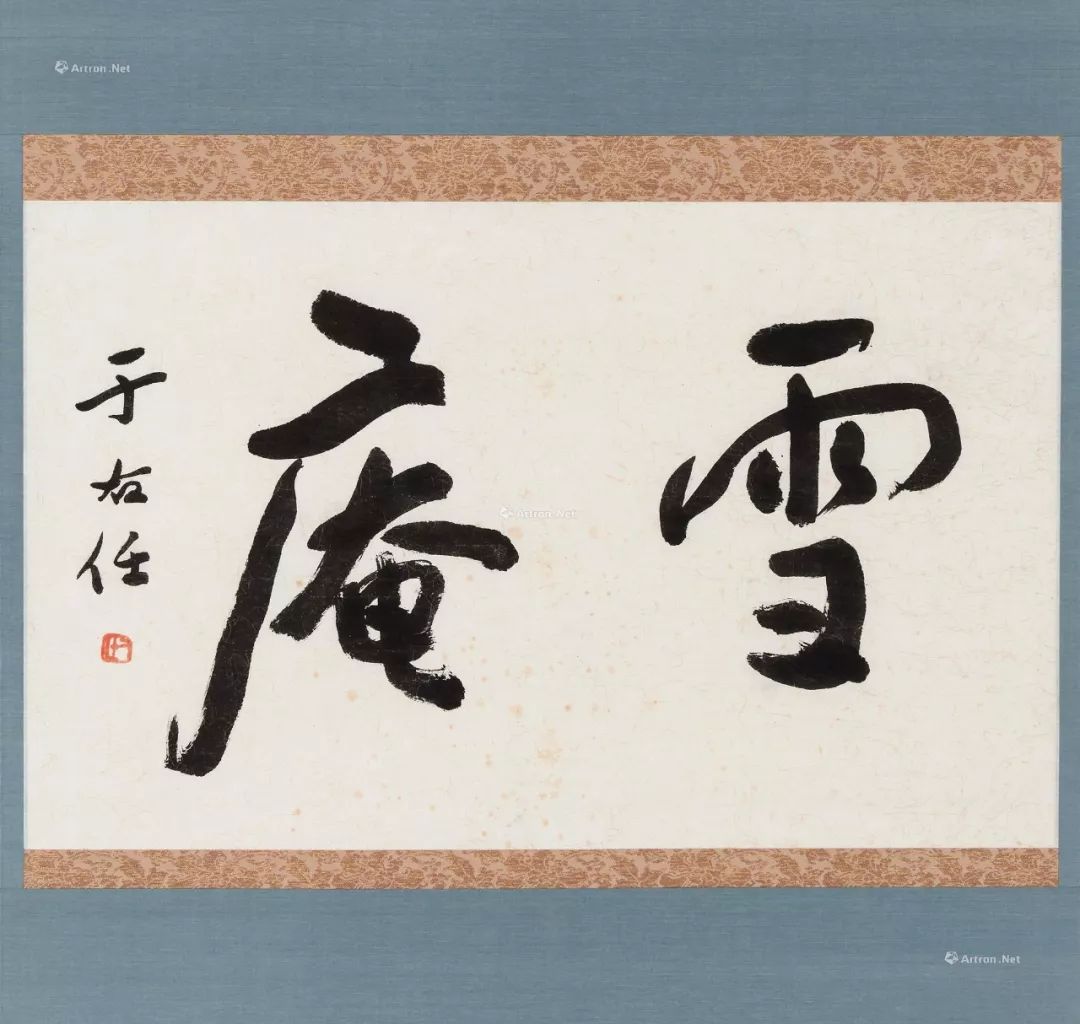 雪庵
于右任
Artron.Net
Artron.Net
Artron.Net